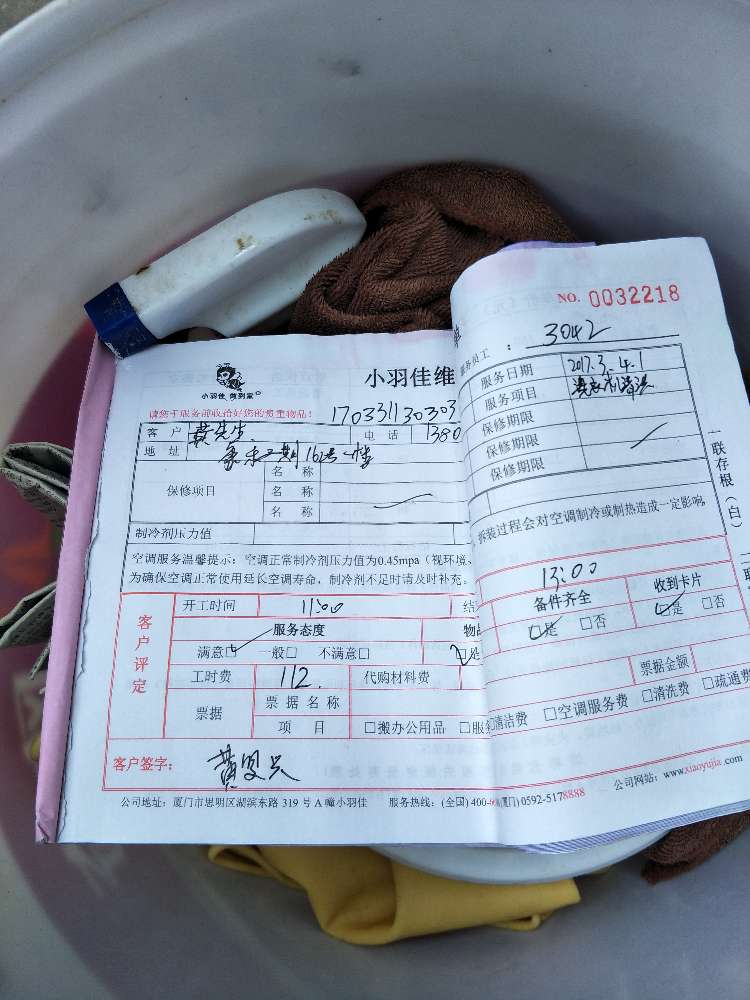 NO. 0032218
小羽佳 做到家
小羽佳维
服务员工 : 3042
请您于服务前收拾好您的贵重物品!
170331130303
服务日期 2017.3.4.1
客 户 黄先生 电 话 1380
服务项目 洗衣机清洗
地 址
保修期限
保修期限
保修期限
保修项目
名 称
名 称
名 称
制冷剂压力值
空调服务温馨提示:空调正常制冷剂压力值为0.45mpa(视环境、
为确保空调正常使用延长空调寿命,制冷剂不足时请及时补充。
拆装过程会对空调制冷或制热造成一定影响
一联存根(白)
客户评定
开工时间 11:00 结
13:00
服务态度 物品
备件齐全 收到卡片
满意□ 一般□ 不满意□ □是
□是 □否 □是 □否
工时费 112. 代购材料费
票据金额
票据
票 据 名 称
项 目
□搬办公用品 □服务
清洁费 □空调服务费 □清洗费 □疏通费
客户签字:
公司地址:厦门市思明区湖滨东路 319 号 A 幢小羽佳 服务热线:(全国) 400- (厦门) 0592-5178888 公司网站:www.xiaoyujia.com